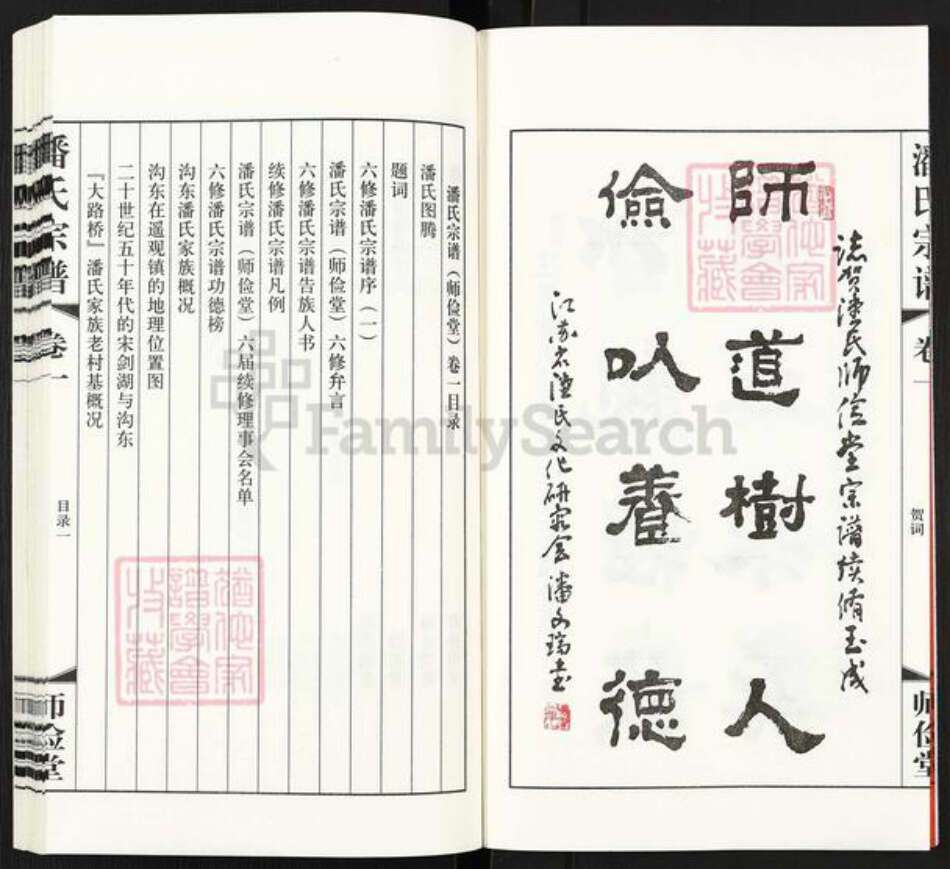 潘氏宗谱
卷一
贺词
师俭堂
志贺潘氏师俭堂宗谱续修玉成
師道樹人
儉以養德
江苏省潘氏文化研究会潘文瑞书
潘氏宗谱（师俭堂）卷一目录
潘氏图腾
题词
六修潘氏宗谱序（一）
潘氏宗谱（师俭堂）六修弁言
六修潘氏宗谱告族人书
续修潘氏宗谱凡例
潘氏宗谱（师俭堂）六届续修理事会名单
六修潘氏宗谱功德榜
沟东潘氏家族概况
沟东在遥观镇的地理位置图
二十世纪五十年代的宋剑湖与沟东
『大路桥』潘氏家族老村基概况
潘氏宗谱
卷一
目录一
师俭堂
FamilySearch